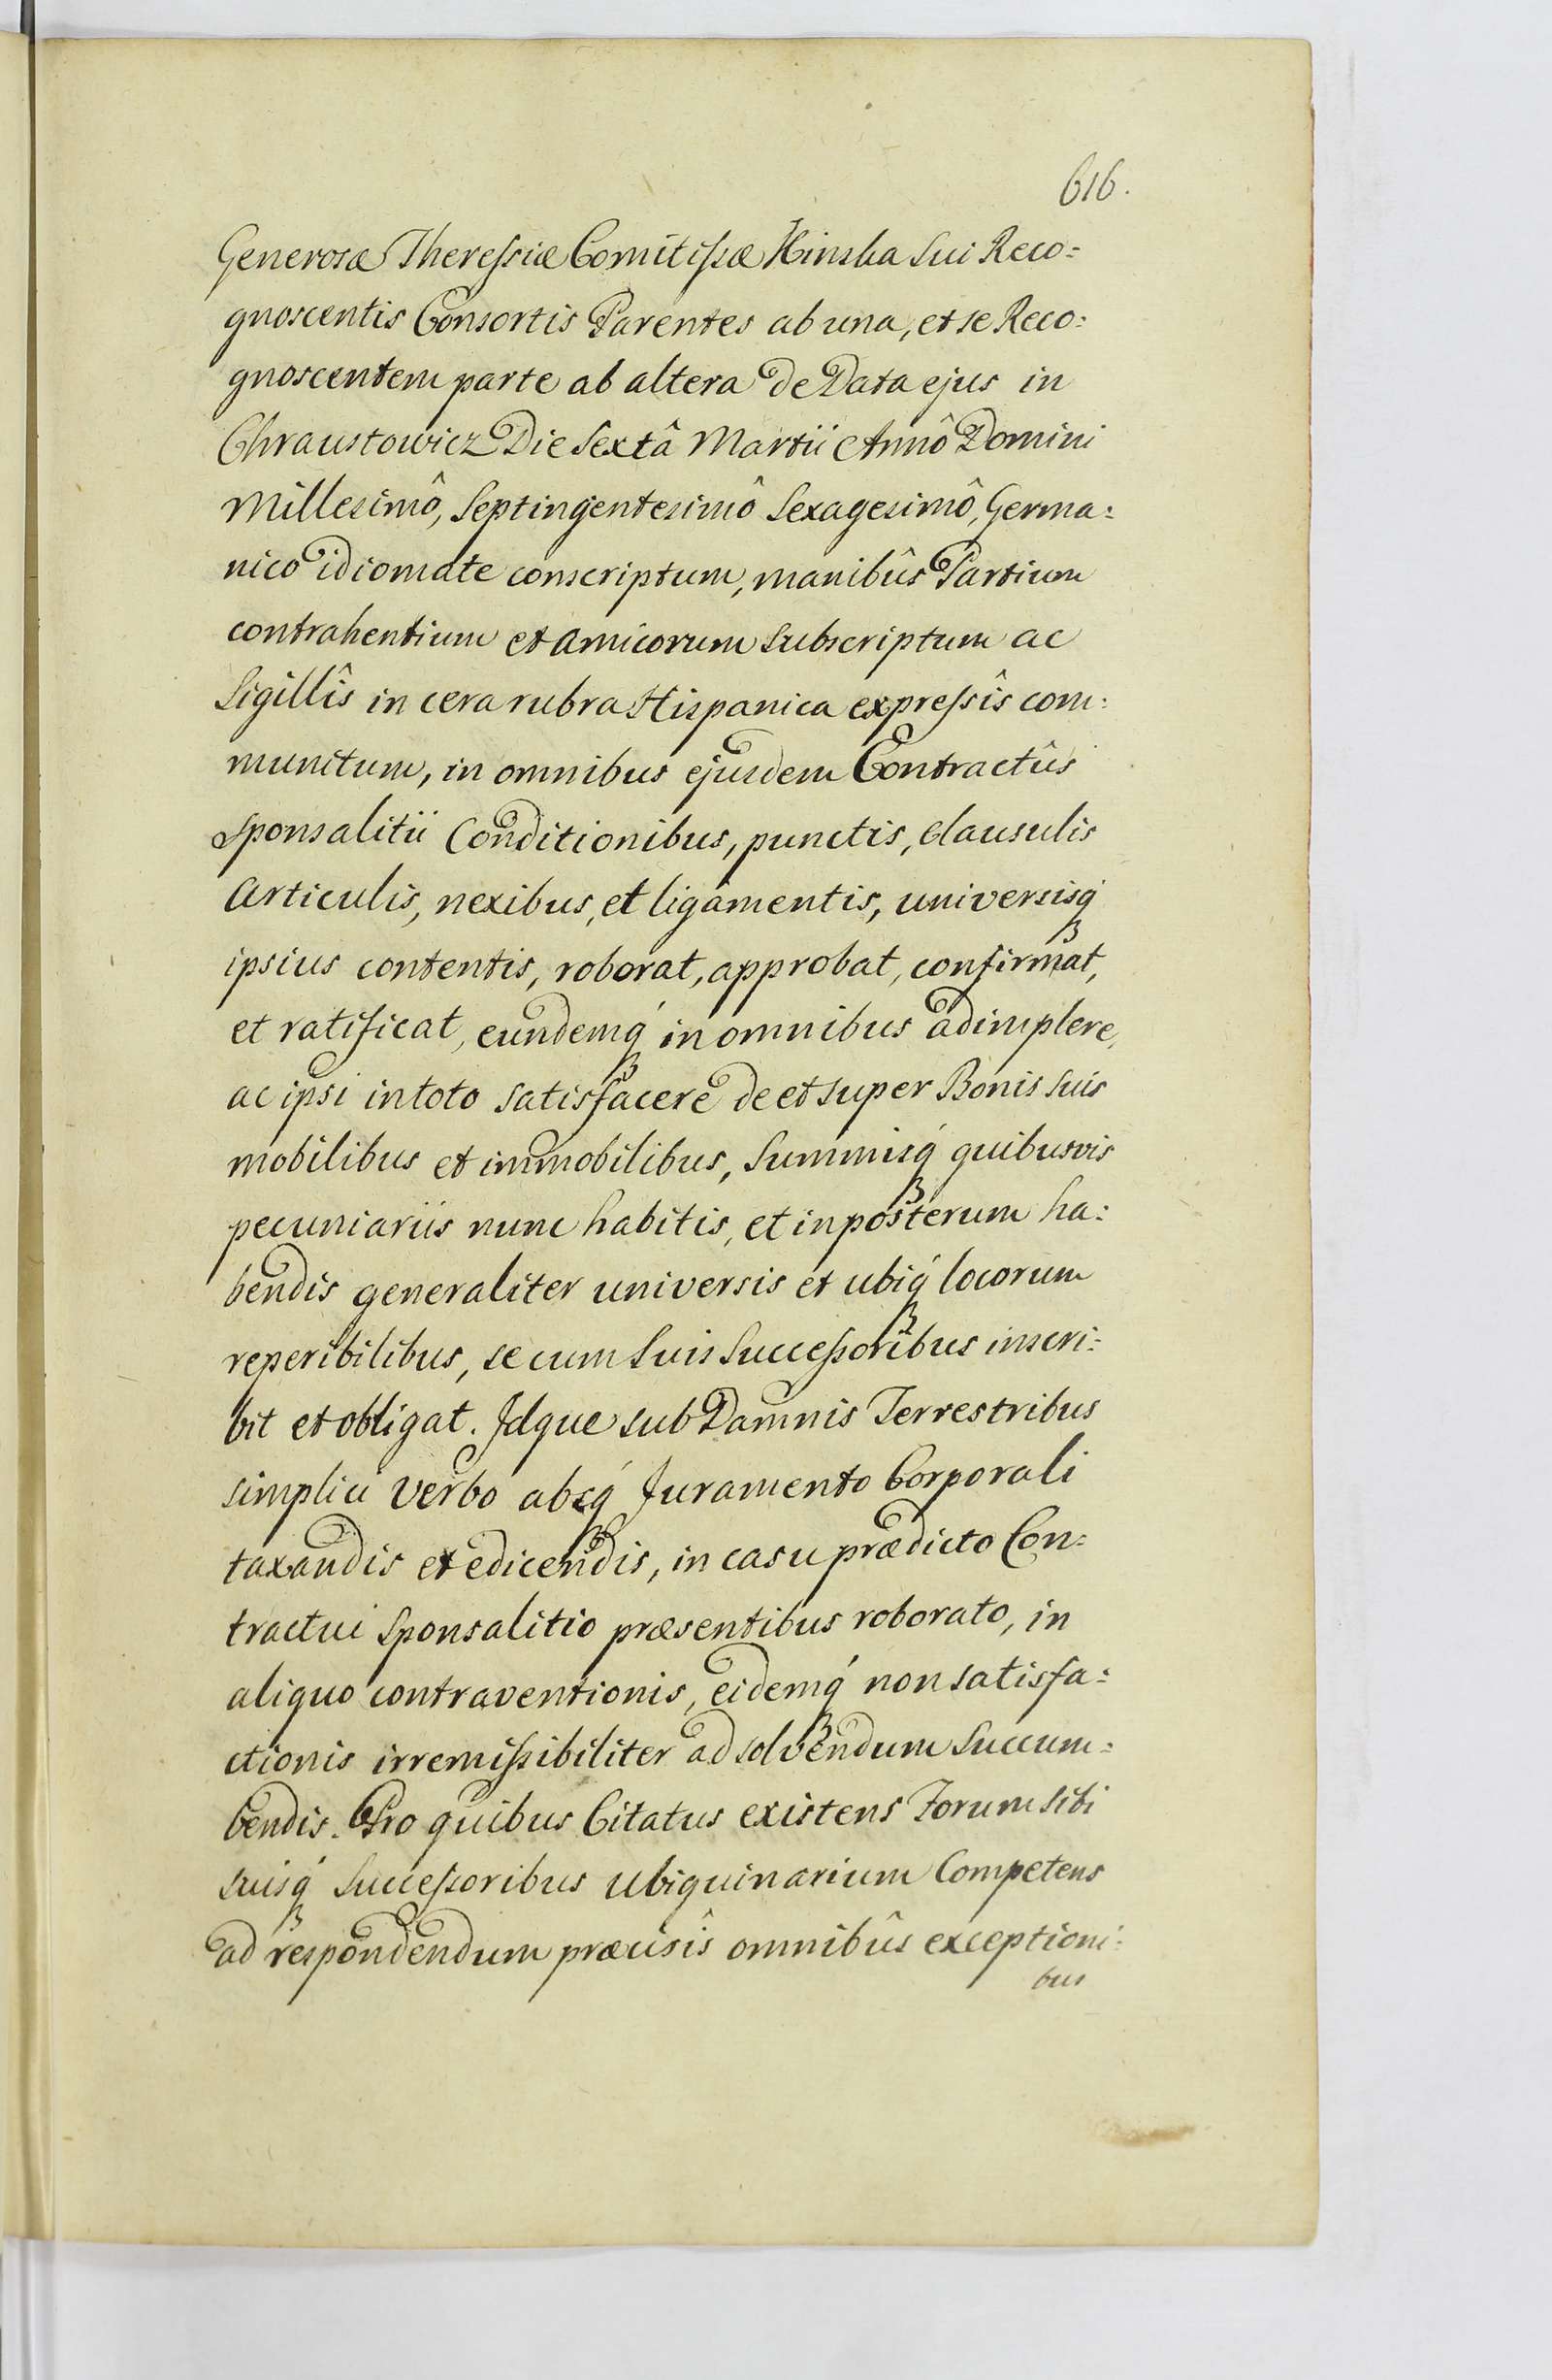 616.
Generosæ Theressiæ Comitissæ Kinska Sui Reco=
gnoscentis Consortis Parentes ab una, et se Reco=
gnoscentem parte ab altera de Data ejus in
Chraustowicz Die Sextâ Martii Annô Domini
Millesimô, Septingentesimô Sexagesimô, Germa=
nico idiomate conscriptum, manibûs Partium
contrahentium et amicorum subscriptum ac
Sigillîs in cera rubra Hispanica expressîs com=
munitum, in omnibus ejusdem Contractûs
Sponsalitii Conditionibus, punctis, Clausulis
Articulis, nexibus, et ligamentis, universisq́ꝫ
ipsius contentis, roborat, approbat, confirmat,
et ratificat, eundemq́ꝫ in omnibus adimplere,
ac ipsi in toto satisfacere de et super Bonis suis
mobilibus et immobilibus, Summisq́ꝫ quibusvis
pecuniariis nunc habitis, et in posterum ha=
bendis generaliter universis et ubiq́ꝫ locorum
reperibilibus, se cum Suis Successoribus inscri=
bit et obligat. Idque sub Damnis Terrestribus
simplici verbo absq́ꝫ Juramento Corporali
taxandis et edicendis, in casu prædicto Con=
tractui Sponsalitio præsentibus roborato, in
aliquo contraventionis, eidemq́ꝫ non satisfa=
ctionis irremissibiliter ad solvendum Succum=
bendis. Pro quibus Citatus existens Forum sibi
suisq́ꝫ Successoribus ubiquinarium Competens
ad respondendum præcisîs omnibûs exceptioni=
bus